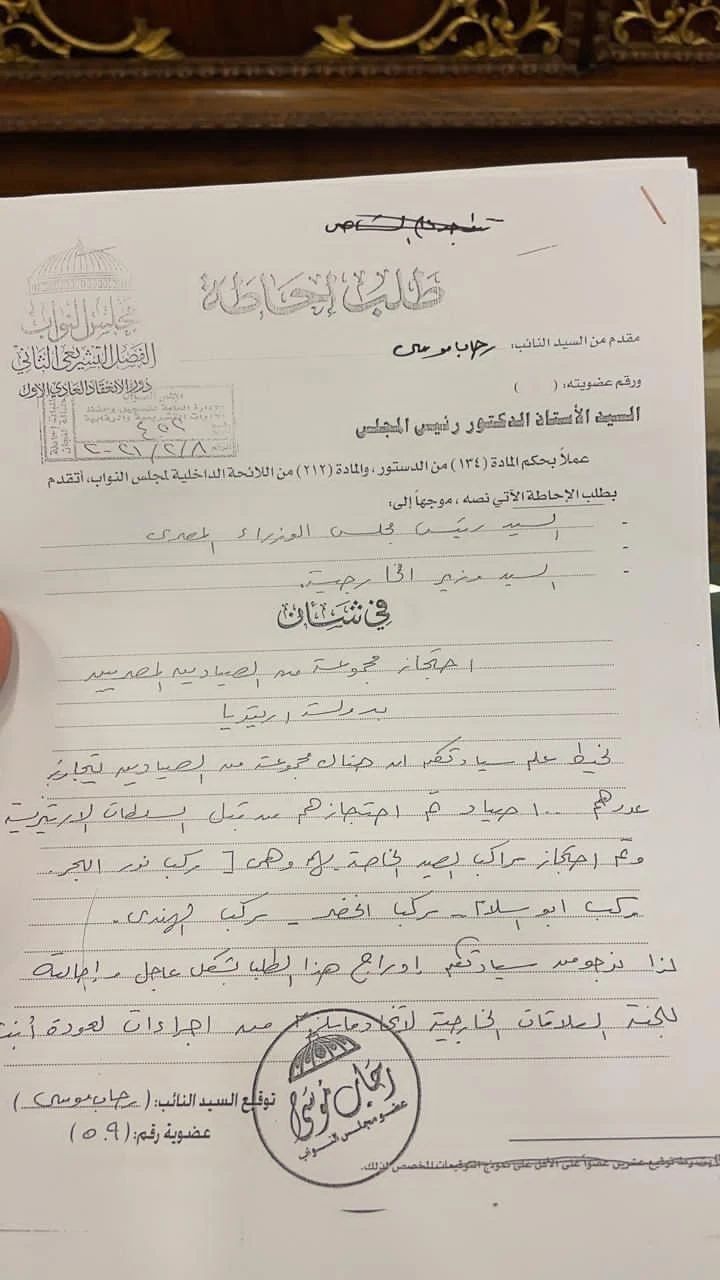 طلب إحاطة
مجلس النواب
الفصل التشريعى الثانى
دور الانعقاد العادى الأول
مقدم من السيد النائب: رحاب موسى
ورقم عضويته: (    )
٤٥٢
٢٠٢١/٢/٨
السيد الأستاذ الدكتور رئيس المجلس
عملاً بحكم المادة (١٣٤) من الدستور، والمادة (٢١٢) من اللائحة الداخلية لمجلس النواب، أتقدم
بطلب الإحاطة الآتي نصه، موجهاً إلى:
- السيد رئيس مجلس الوزراء المصرى
-
- السيد وزير الخارجية.
في شأن
احتجاز مجموعة من الصيادين المصريين
بدولة اريتريا
نحيط علم سيادتكم ان هناك مجموعة من الصيادين يتجاوز
عددهم ١٠٠ صياد تم احتجازهم من قبل السلطات الاريتيرية
وتم احتجاز مراكب الصيد الخاصة بهم وهى [ مركب نور البحر.
مركب ابو السلام - مركب الخضر - مركب الهندى.
لذا نرجو من سيادتكم ادراج هذا الطلب بشكل عاجل و إحالته
للجنة العلاقات الخارجية لاتخاذ مايلزم من اجراءات لعودة
توقيع السيد النائب: (رحاب موسى)
عضوية رقم: (٥٠٩)
رحاب موسى
عضو مجلس النواب
عشرين عضواً على الأقل على نموذج التوقيعات المخصص لذلك.